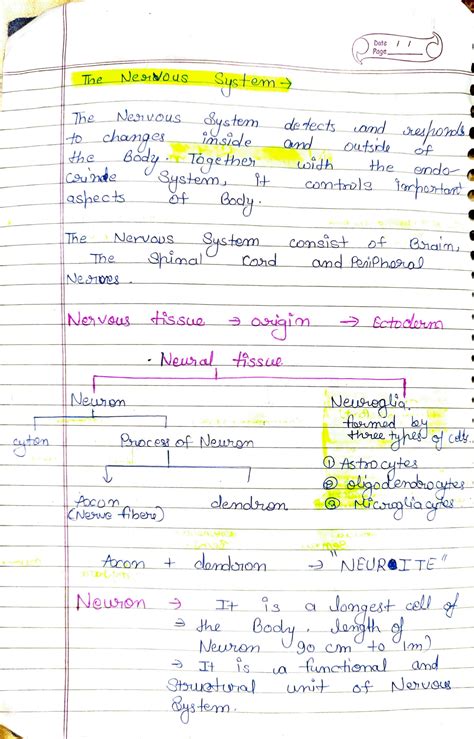 Date 1 1
Page
The Nervous System →
The Nervous System detects and responds
to changes inside and outside of
the Body. Together with the endo
crinde System, it controls important
aspects of Body.
The Nervous System consist of Brain,
The Spinal Cord and Peripheral
Nerves.
Nervous tissue → origin → Ectoderm
• Neural tissue
Neuron
Neuroglia.
formed by
three types of cells..
cyton
Process of Neuron
① Astrocytes
② oligodendrocytes
③ Microgliacytes
Axon
(Nerve fibers)
dendron
Axon + dendron → "NEUROITE"
Neuron → It is a longest cell of
⇒ the Body. length of
Neuron 90 cm to 1m)
⇒ It is a functional and
Structural unit of Nervous
System.